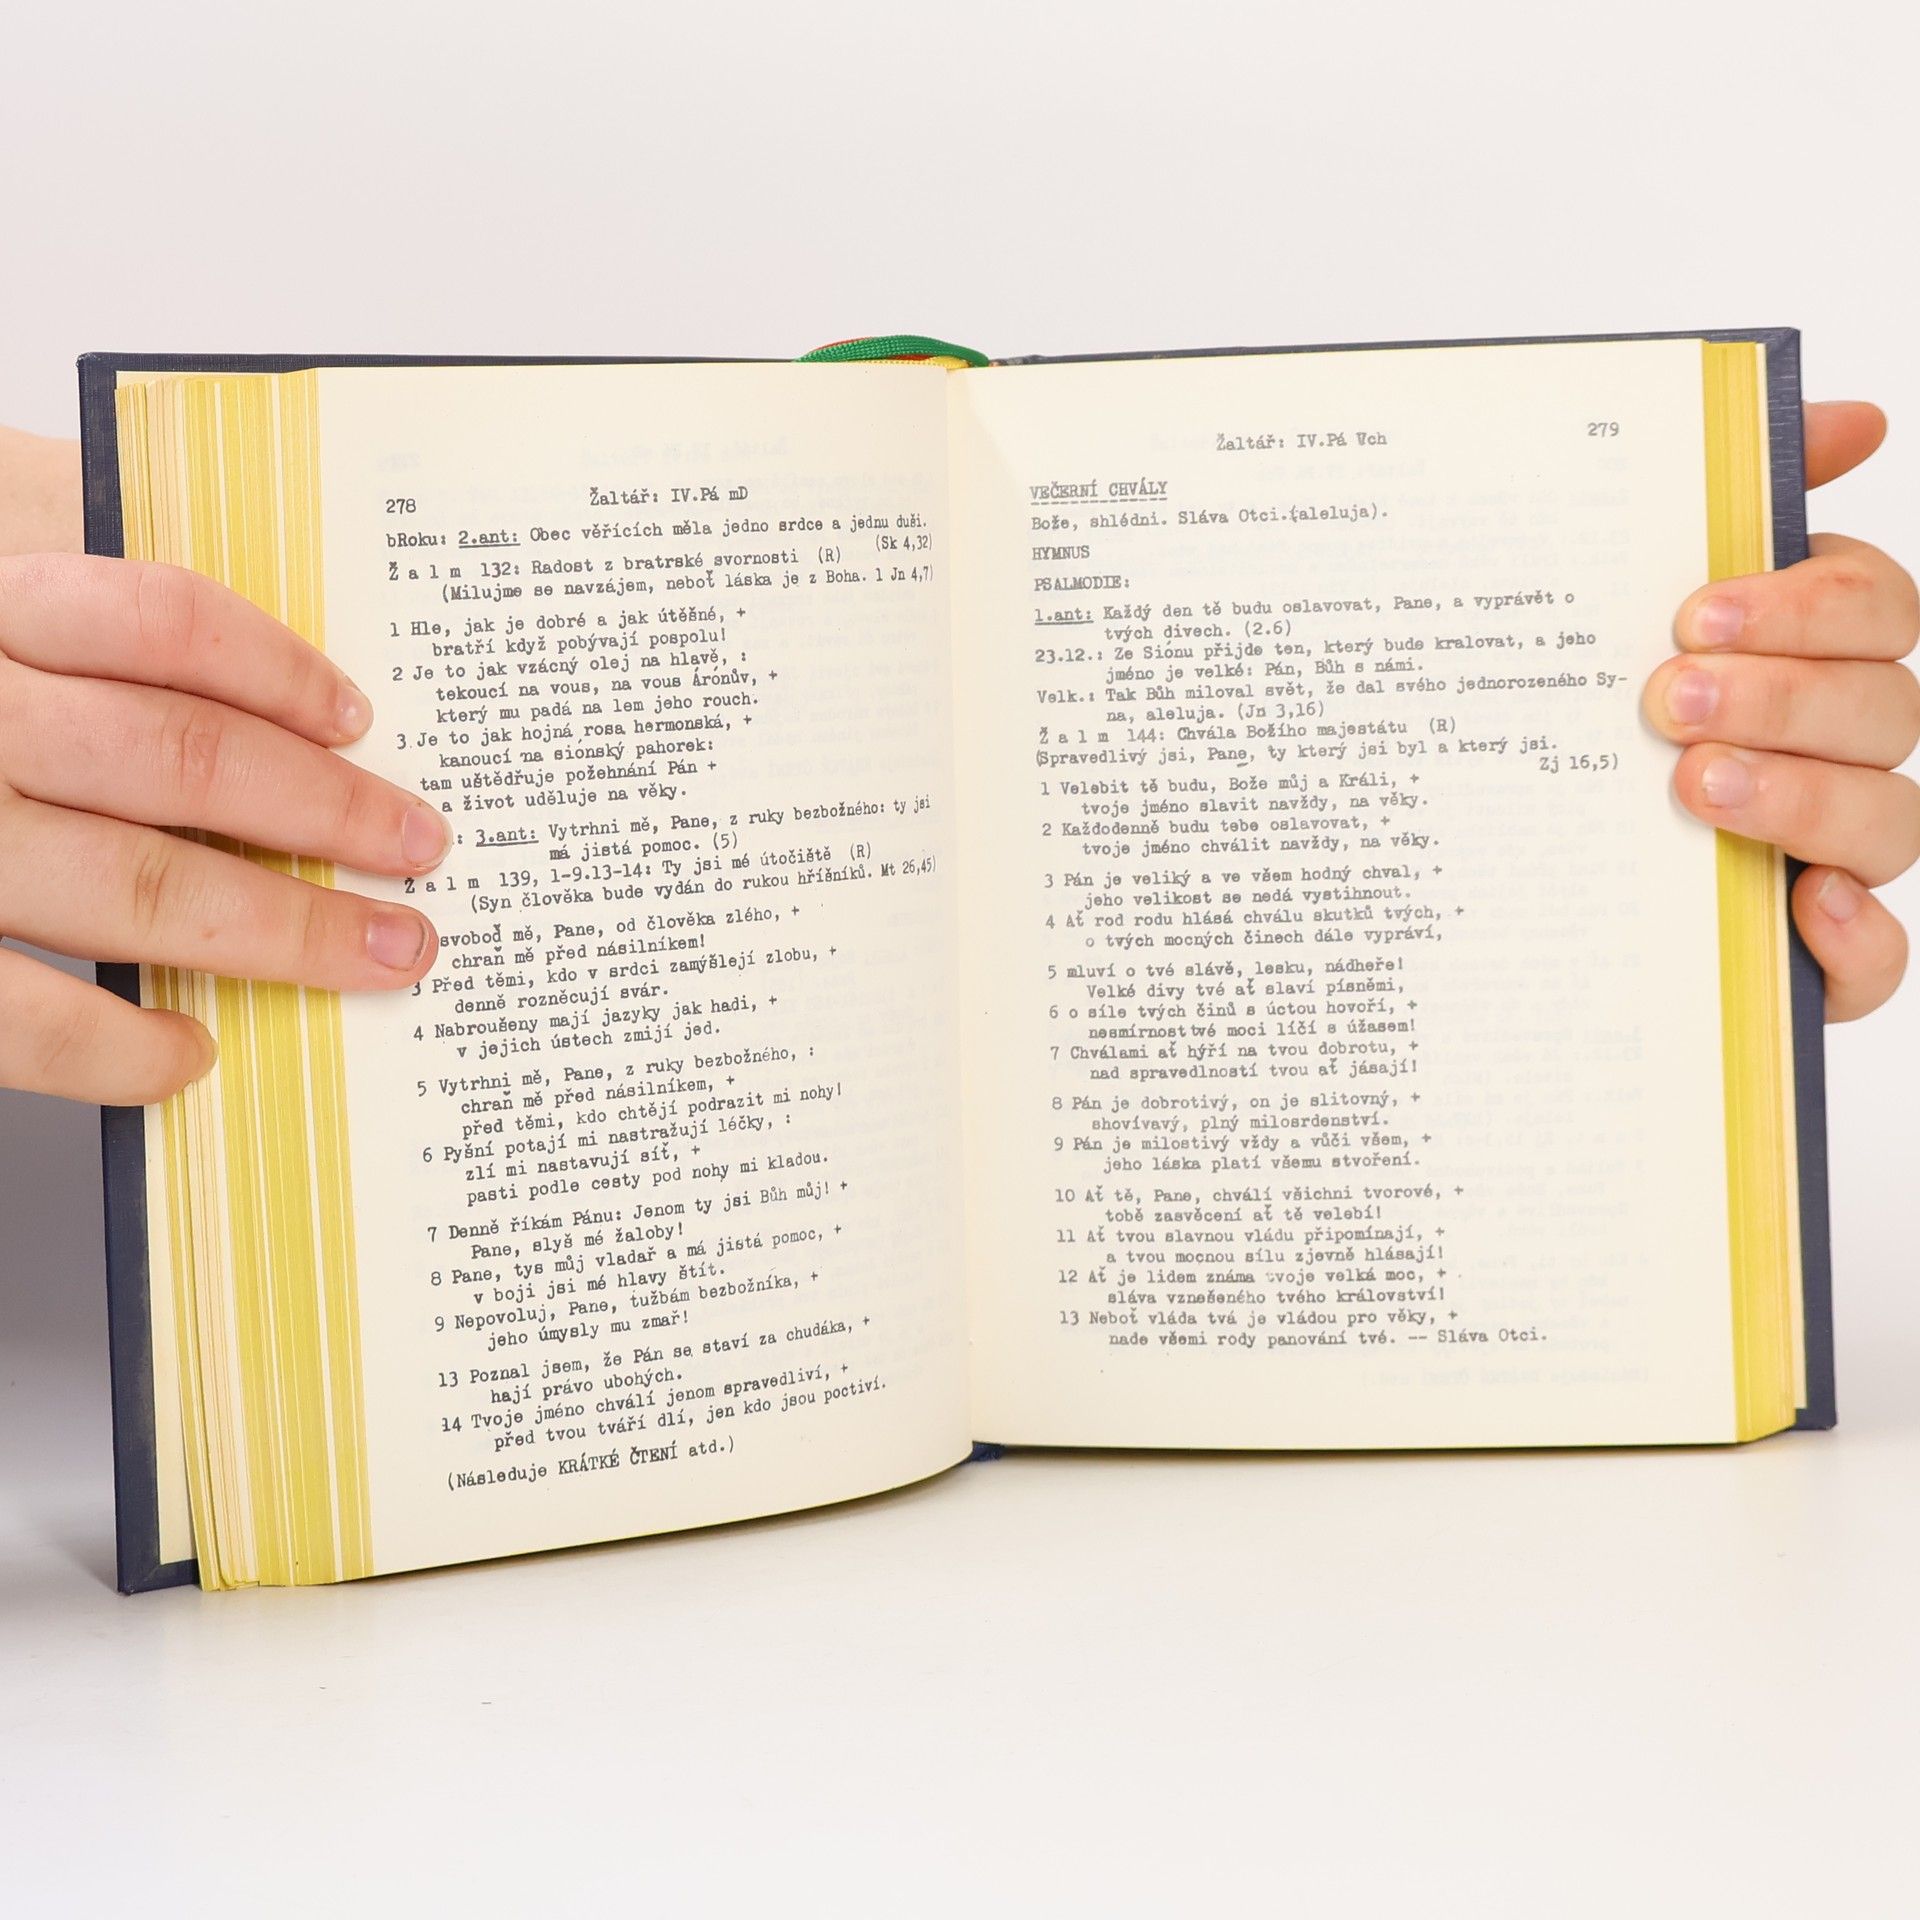 278 Žaltář: IV.Pá mD
bRoku: 2.ant: Obec věřících měla jedno srdce a jednu duši.
(Sk 4,32)
Ž a l m 132: Radost z bratrské svornosti (R)
(Milujme se navzájem, neboť láska je z Boha. 1 Jn 4,7)
1 Hle, jak je dobré a jak útěšné, +
bratří když pobývají pospolu!
2 Je to jak vzácný olej na hlavě, :
tekoucí na vous, na vous Árónův, +
který mu padá na lem jeho rouch.
3 Je to jak hojná rosa hermonská, +
kanoucí na siónský pahorek:
tam uštědřuje požehnání Pán +
a život uděluje na věky.
: 3.ant: Vytrhni mě, Pane, z ruky bezbožného: ty jsi
má jistá pomoc. (5)
Ž a l m 139, 1-9.13-14: Ty jsi mé útočiště (R)
(Syn člověka bude vydán do rukou hříšníků. Mt 26,45)
svoboď mě, Pane, od člověka zlého, +
chraň mě před násilníkem!
3 Před těmi, kdo v srdci zamýšlejí zlobu, +
denně rozněcují svár.
4 Nabroušeny mají jazyky jak hadi, +
v jejich ústech zmijí jed.
5 Vytrhni mě, Pane, z ruky bezbožného, :
chraň mě před násilníkem, +
před těmi, kdo chtějí podrazit mi nohy!
6 Pyšní potají mi nastražují léčky, :
zlí mi nastavují síť, +
pasti podle cesty pod nohy mi kladou.
7 Denně říkám Pánu: Jenom ty jsi Bůh můj! +
Pane, slyš mé žaloby!
8 Pane, tys můj vladař a má jistá pomoc, +
v boji jsi mé hlavy štít.
9 Nepovoluj, Pane, tužbám bezbožníka, +
jeho úmysly mu zmař!
13 Poznal jsem, že Pán se staví za chudáka, +
hají právo ubohých.
14 Tvoje jméno chválí jenom spravedliví, +
před tvou tváří dlí, jen kdo jsou poctiví.
(Následuje KRÁTKÉ ČTENÍ atd.)
Žaltář: IV.Pá Vch 279
VEČERNÍ CHVÁLY
Bože, shlédni. Sláva Otci.(aleluja).
HYMNUS
PSALMODIE:
1.ant: Každý den tě budu oslavovat, Pane, a vyprávět o
tvých divech. (2.6)
23.12.: Ze Siónu přijde ten, který bude kralovat, a jeho
jméno je velké: Pán, Bůh s námi.
Velk.: Tak Bůh miloval svět, že dal svého jednorozeného Sy-
na, aleluja. (Jn 3,16)
Ž a l m 144: Chvála Božího majestátu (R)
(Spravedlivý jsi, Pane, ty který jsi byl a který jsi.
Zj 16,5)
1 Velebit tě budu, Bože můj a Králi, +
tvoje jméno slavit navždy, na věky.
2 Každodenně budu tebe oslavovat, +
tvoje jméno chválit navždy, na věky.
3 Pán je veliký a ve všem hodný chval, +
jeho velikost se nedá vystihnout.
4 Ať rod rodu hlásá chválu skutků tvých, +
o tvých mocných činech dále vypráví,
5 mluví o tvé slávě, lesku, nádheře!
Velké divy tvé ať slaví písněmi,
6 o síle tvých činů s úctou hovoří, +
nesmírnost tvé moci líčí s úžasem!
7 Chválami ať hýří na tvou dobrotu, +
nad spravedlností tvou ať jásají!
8 Pán je dobrotivý, on je slitovný, +
shovívavý, plný milosrdenství.
9 Pán je milostivý vždy a vůči všem, +
jeho láska platí všemu stvoření.
10 Ať tě, Pane, chválí všichni tvorové, +
tobě zasvěcení ať tě velebí!
11 Ať tvou slavnou vládu připomínají, +
a tvou mocnou sílu zjevně hlásají!
12 Ať je lidem známa tvoje velká moc, +
sláva vznešeného tvého království!
13 Neboť vláda tvá je vládou pro věky, +
nade všemi rody panování tvé. -- Sláva Otci.